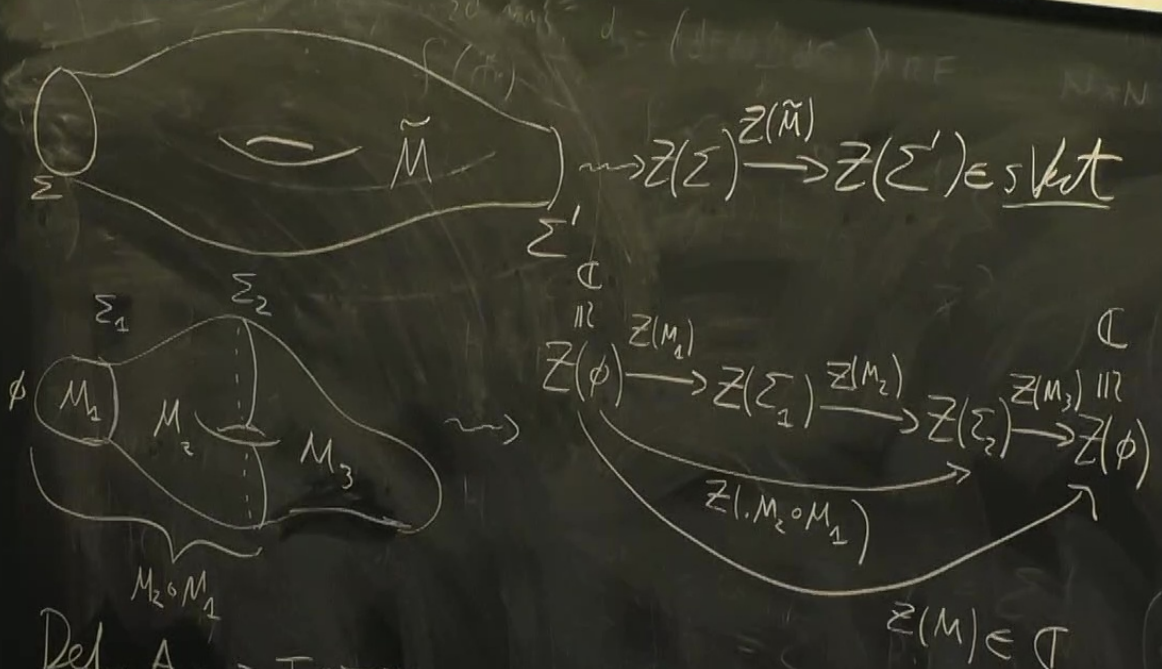 Σ M̃ Σ' ⇝ Z(Σ) —Z(M̃)→ Z(Σ') ∈ sVect
Σ₁ Σ₂
ϕ M₁ M₂ M₃ ⇝
ℂ ≅ Z(ϕ) —Z(M₁)→ Z(Σ₁) —Z(M₂)→ Z(Σ₂) —Z(M₃)→ Z(ϕ) ≅ ℂ
Z(M₂∘M₁)
M₂∘M₁
Z(M) ∈ ℂ
Def A